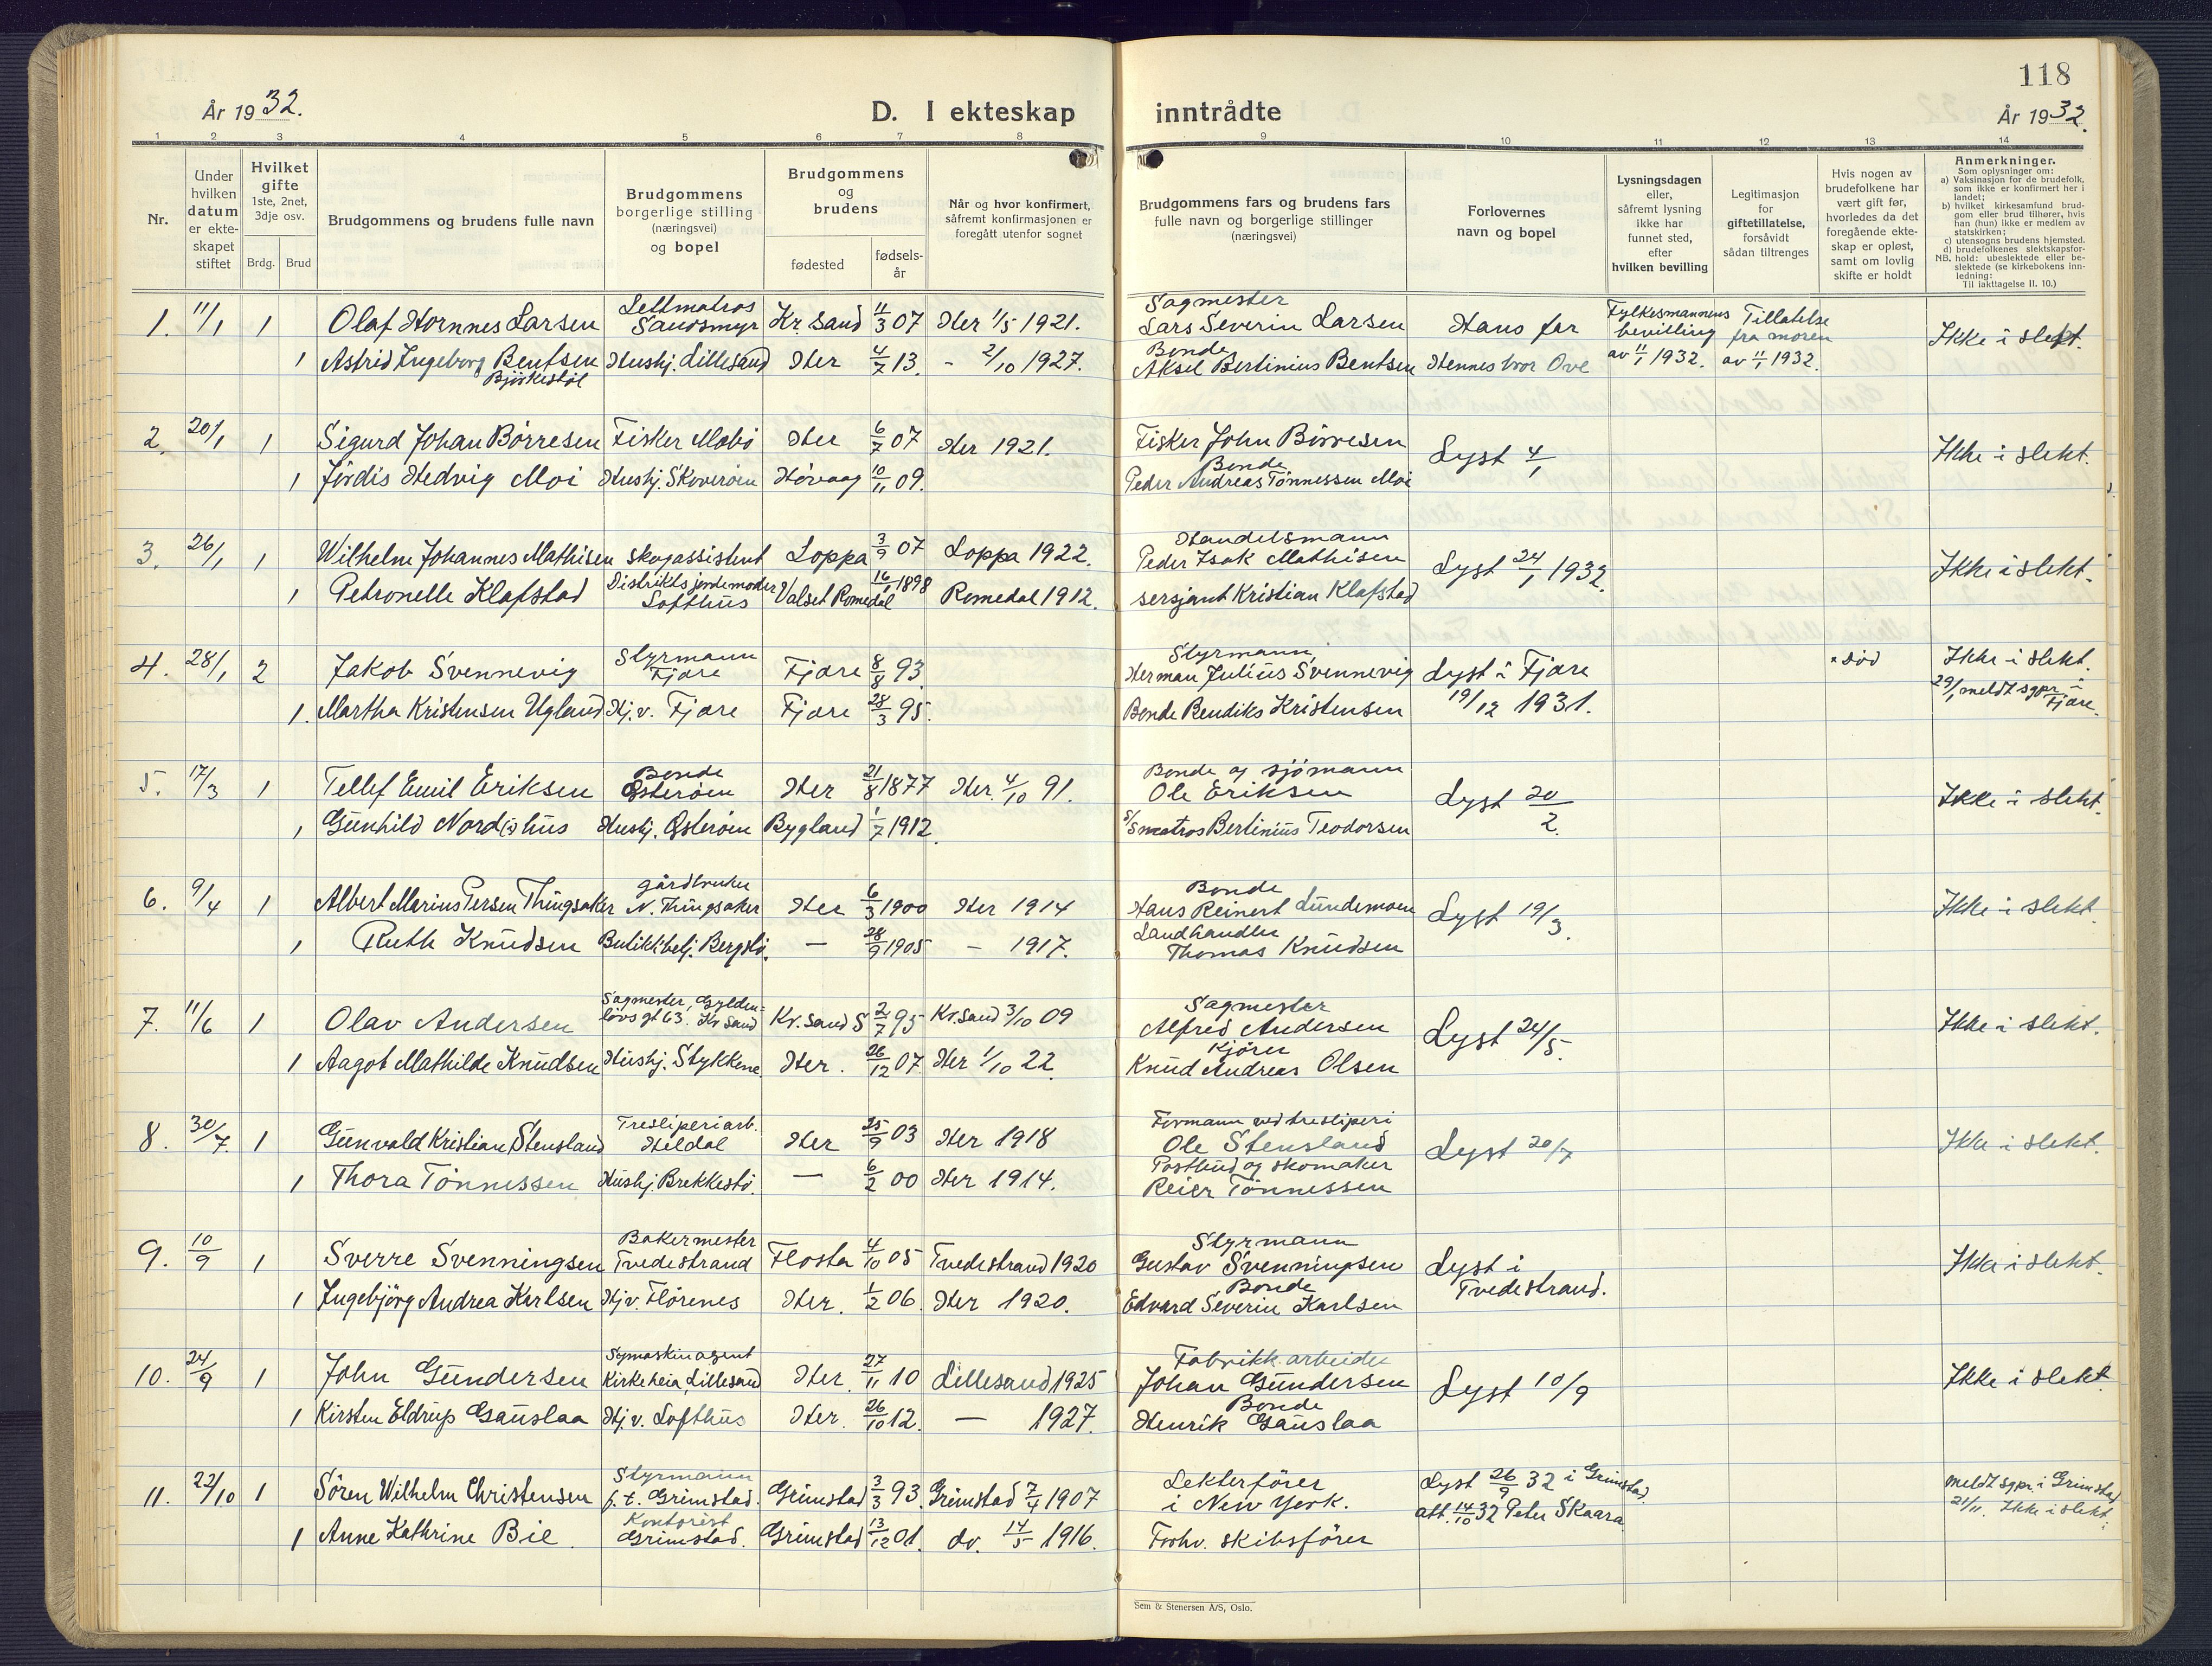 118
År 1932.
D. I ekteskap inntrådte
År 1932.
1 2 3 4 5 6 7 8 9 10 11 12 13 14
Nr.
Under hvilken datum er ekteskapet stiftet
Hvilket gifte 1ste, 2net, 3dje osv.
Brdg. Brud
Brudgommens og brudens fulle navn
Brudgommens borgerlige stilling (næringsvei) og bopel
Brudgommens og brudens
fødested
fødselsår
Når og hvor konfirmert, såfremt konfirmasjonen er foregått utenfor sognet
Brudgommens fars og brudens fars fulle navn og borgerlige stillinger (næringsvei)
Forlovernes navn og bopel
Lysningsdagen eller, såfremt lysning ikke har funnet sted, efter hvilken bevilling
Legitimasjon for giftetillatelse, forsåvidt sådan tiltrenges
Hvis nogen av brudefolkene har vært gift før, hvorledes da det foregående ekteskap er opløst, samt om lovlig skifte er holdt
Anmerkninger.
Som oplysninger om:
a) Vaksinasjon for de brudefolk, som ikke er konfirmert her i landet;
b) hvilket kirkesamfund brudgom eller brud tilhører, hvis han (hun) ikke er medlem av statskirken;
c) utensogns brudens hjemsted.
d) brudefolkenes slektskapsforhold: ubeslektede eller beslektede (se kirkebokens innledning:
NB.
Til iakttagelse II. 10.)
1. 11/1 1 Olaf Hornnes Larsen Lettmatros Sandsmyr Kr sand 11/3 07 Her 1/5 1921. Sagmester Lars Severin Larsen Hans far Fylkesmannens bevilling av 11/1 1932. Tillatelse fra moren av 11/1 1932. Ikke i slekt.
1 Astrid Ingeborg Bentsen Bjørkestøl Hushj. Lillesand Her 4/7 13. - 2/10 1927. Bonde Aksel Bertinius Bentsen Hennes bror Ove
2. 20/1 1 Sigurd Johan Børresen Fisker Mobø Her 6/7 07 Her 1921. Fisker John Börresen Lyst 4/1 Ikke i slekt.
1 Jørdis Hedvig Moi Hushj. Skoverøen Høvaag 10/11 09. Bonde Peder Andreas Tönnessen Moi
3. 26/1 1 Wilhelm Johannes Mathisen skogassistent Loppa 3/9 07 Loppa 1922. Handelsmann Peder Isak Mathisen Lyst 24/1 1932. Ikke i slekt.
1 Petronelle Klafstad Distrikts jordemoder Lofthus Valset Romedal 16/1 1898 Romedal 1912. sersjant Kristian Klafstad
4. 28/1 2 Jakob Svennevig Styrmann Fjære Fjære 8/8 93. Styrmann Herman Julius Svennevig Lyst i Fjære 19/12 1931. død Ikke i slekt. 29/1 meldt sgpr. i Fjære.
1. Martha Kristensen Ugland Hj. v. Fjære Fjære 28/3 95. Bonde Bendiks Kristensen
5. 17/3 1 Tellef Emil Eriksen Bonde Østerøen Her 21/8 1877 Her. 4/10 91. Bonde og sjömann Ole Eriksen Lyst 20/2. Ikke i slekt.
1 Gunhild Nord(is)hus Hushj. Østerøen Bygland 1/7 1912. s/s matros Bertinius Teodorsen
6. 9/4 1 Albert Marius Persen Thingsaker gårdbruker N. Thingsaker Her 6/3 1900 Her 1914 Bonde Hans Reinert Lundemoen Lyst 19/3. Ikke i slekt.
1 Ruth Knudsen Butikkbetj. Bergstø. — 28/9 1905 - 1917. Landhandler Thomas Knudsen
7. 11/6 1 Olav Andersen Sagmester, Gyldenløvs gt 63. Kr sand Kr. sand S 2/7 95 Kr. sand 3/10 09 Sagmester Alfred Andersen Lyst 24/5. Ikke i slekt.
1 Aagot Mathilde Knudsen Hushj. Stykkene. Her. 26/12 07. Her 1/10 22. Kjörer Knud Andreas Olsen
8. 30/7. 1 Gunvald Kristian Stensland Tresliperiarb. Heldal Her 25/9 03 Her 1918 Formann ved tresliperi Ole Stensland Lyst 20/7 Ikke i slekt.
1 Thora Tönnessen Hushj. Brekkestø. — 6/2 00 Her 1914. Postbud og skomaker Reier Tönnessen
9. 10/9 1 Sverre Svenningsen Bakermester Tvedestrand Flosta 4/10 05 Tvedestrand 1920 Styrmann Gustav Svenningsen Lyst i Tvedestrand. Ikke i slekt.
1 Ingebjörg Andrea Karlsen Hj v. Flørenes Her. 1/2 06. Her 1920. Bonde Edvard Severin Karlsen
10. 24/9 1 John Gundersen Symaskinagent Kirkeheia, Lillesand Her. 27/11 10 Lillesand 1925 Fabrikkarbeider Johan Gundersen Lyst 10/9 Ikke i slekt.
1 Kirsten Eldrup Gauslaa Hj. v. Lofthus Her. 26/10 12. — 1927. Bonde Henrik Gauslaa
11. 22/10 1 Sören Wilhelm Christensen Styrmann p. t. Grimstad. Grimstad 3/3 93. Grimstad 7/4 1907 Lekterförer i New York. Lyst 26/9 32 i Grimstad. att. 14/10 32 Peter Skaara meldt sgpr. i Grimstad 21/11. Ikke i slekt.
1 Anne Kathrine Bie. Kontorist Grimstad. Grimstad 13/12 01. do. 14/5 1916. Forhv. skibsförer
Sem & Stenersen A/S, Oslo.